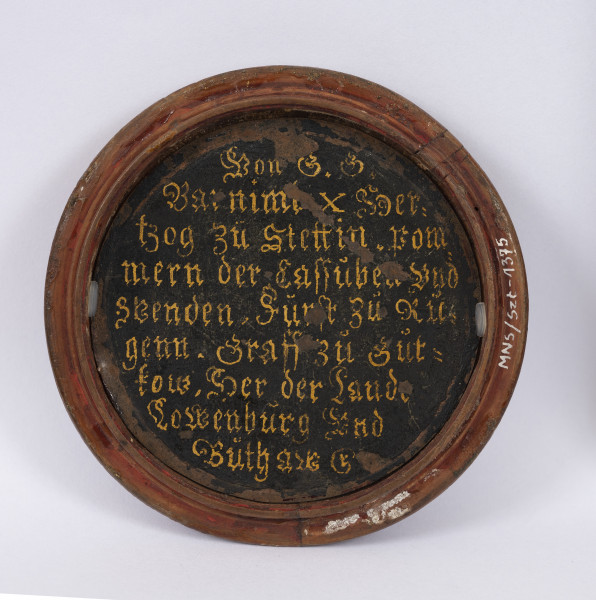 Von G. G.
Barnim X Her-
tzog zu Stettin. Pom
mern der Cassuben Vnd
Wenden. Furst zu Ru-
genn. Graff zu Gut-
kow, Her der Land
Lowenburg Vnd
Buthaw
MNS/Szt-1375